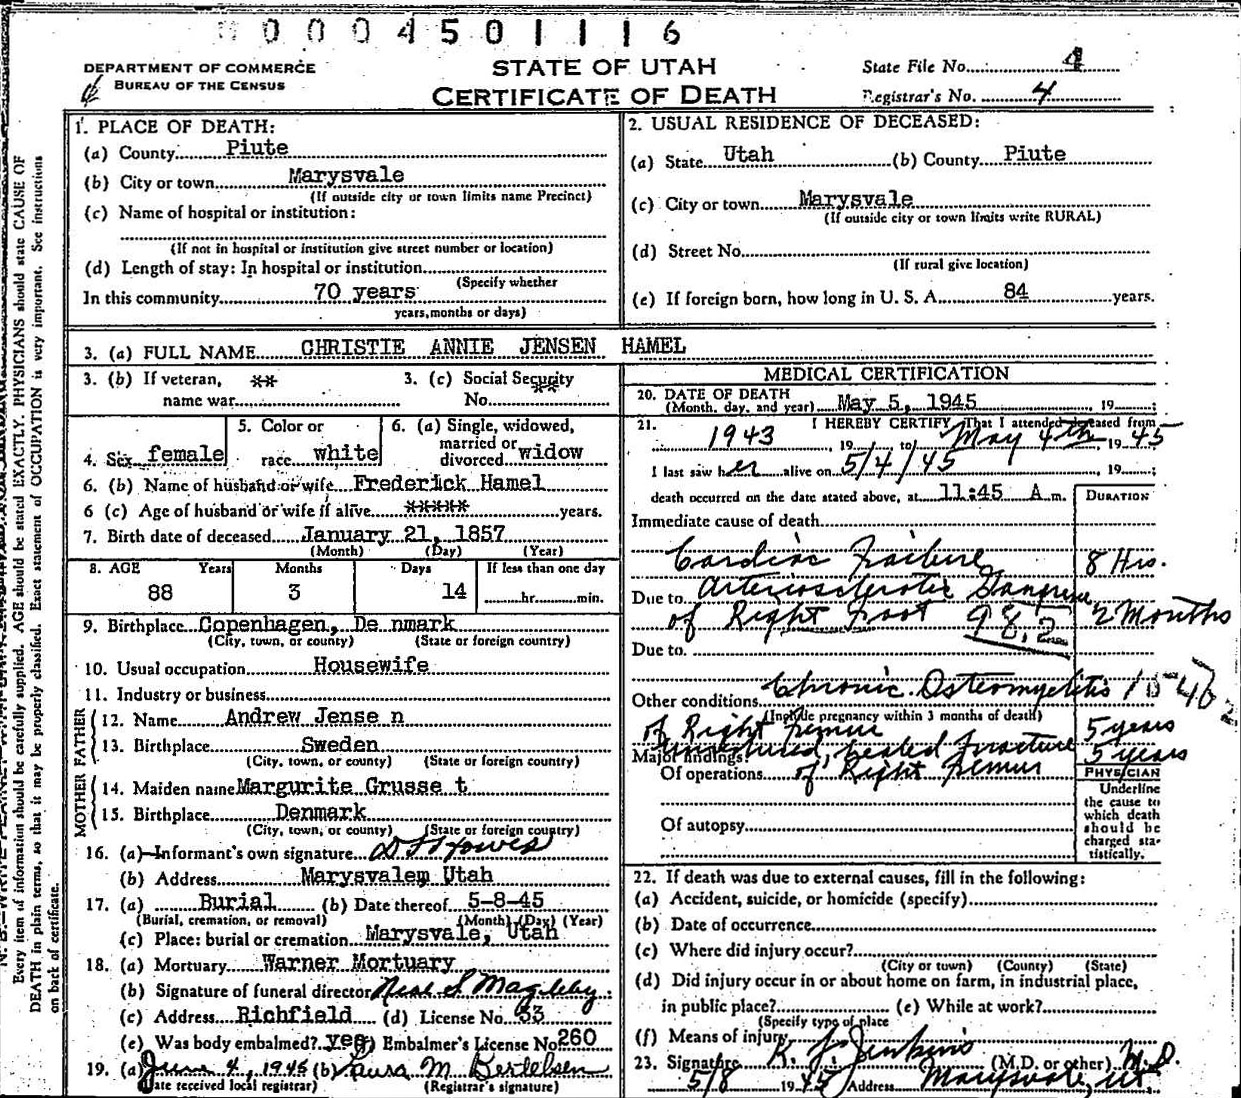 0004501116
DEPARTMENT OF COMMERCE
BUREAU OF THE CENSUS
STATE OF UTAH
CERTIFICATE OF DEATH
State File No. 4
Registrar's No. 4
1. PLACE OF DEATH:
(a) County Piute
(b) City or town Marysvale
(If outside city or town limits name Precinct)
(c) Name of hospital or institution:
(If not in hospital or institution give street number or location)
(d) Length of stay: In hospital or institution
(Specify whether
In this community 70 years
years, months or days)
2. USUAL RESIDENCE OF DECEASED:
(a) State Utah (b) County Piute
(c) City or town Marysvale
(If outside city or town limits write RURAL)
(d) Street No.
(If rural give location)
(e) If foreign born, how long in U. S. A. 84 years.
3. (a) FULL NAME CHRISTIE ANNIE JENSEN HAMEL
3. (b) If veteran, **
name war
3. (c) Social Security
No. **
4. Sex female
5. Color or
race white
6. (a) Single, widowed,
married or
divorced widow
6. (b) Name of husband or wife Frederick Hamel
6 (c) Age of husband or wife if alive ***** years.
7. Birth date of deceased January 21, 1857
(Month) (Day) (Year)
8. AGE Years Months Days If less than one day
88 3 14 hr. min.
9. Birthplace Copenhagen, De nmark
(City, town, or county) (State or foreign country)
10. Usual occupation Housewife
11. Industry or business
FATHER
12. Name Andrew Jense n
13. Birthplace Sweden
(City, town, or county) (State or foreign country)
MOTHER
14. Maiden name Margurite Grusse t
15. Birthplace Denmark
(City, town, or county) (State or foreign country)
16. (a) Informant's own signature
(b) Address Marysvale, Utah
17. (a) Burial (b) Date thereof 5-8-45
(Burial, cremation, or removal) (Month) (Day) (Year)
(c) Place: burial or cremation Marysvale, Utah
18. (a) Mortuary Warner Mortuary
(b) Signature of funeral director Neal S Magleby
(c) Address Richfield (d) License No. 33
(e) Was body embalmed? yes (f) Embalmer's License No 260
19. (a) June 4, 1945 (b) Laura M Bertelsen
(Date received local registrar) (Registrar's signature)
MEDICAL CERTIFICATION
20. DATE OF DEATH
(Month, day, and year) May 5, 1945 19
21. I HEREBY CERTIFY, That I attended deceased from
1943 19 to May 4th 19 45
I last saw her alive on 5/4/45 19
death occurred on the date stated above, at 11:45 A m.
DURATION
Immediate cause of death
Cardiac Failure 8 Hrs.
Due to Arteriosclerotic Gangrene
of Right Foot 98.2 2 Months
Due to
Other conditions Chronic Osteomyelitis
(Include pregnancy within 3 months of death)
of Right Femur 5 years
Major findings: Ununited, healed fracture 5 years
Of operations of Right Femur
PHYSICIAN
Underline
the cause to
which death
should be
charged sta-
tistically.
Of autopsy
22. If death was due to external causes, fill in the following:
(a) Accident, suicide, or homicide (specify)
(b) Date of occurrence
(c) Where did injury occur?
(City or town) (County) (State)
(d) Did injury occur in or about home on farm, in industrial place,
in public place? (e) While at work?
(Specify type of place
(f) Means of injury
23. Signature K. J. Jenkins (M.D. or other) M.D.
5/8 19 45 Address Marysvale, Ut
Every item of information should be carefully supplied. AGE should be stated EXACTLY. PHYSICIANS should state CAUSE OF
DEATH in plain terms, so that it may be properly classified. Exact statement of OCCUPATION is very important. See instructions
on back of certificate.